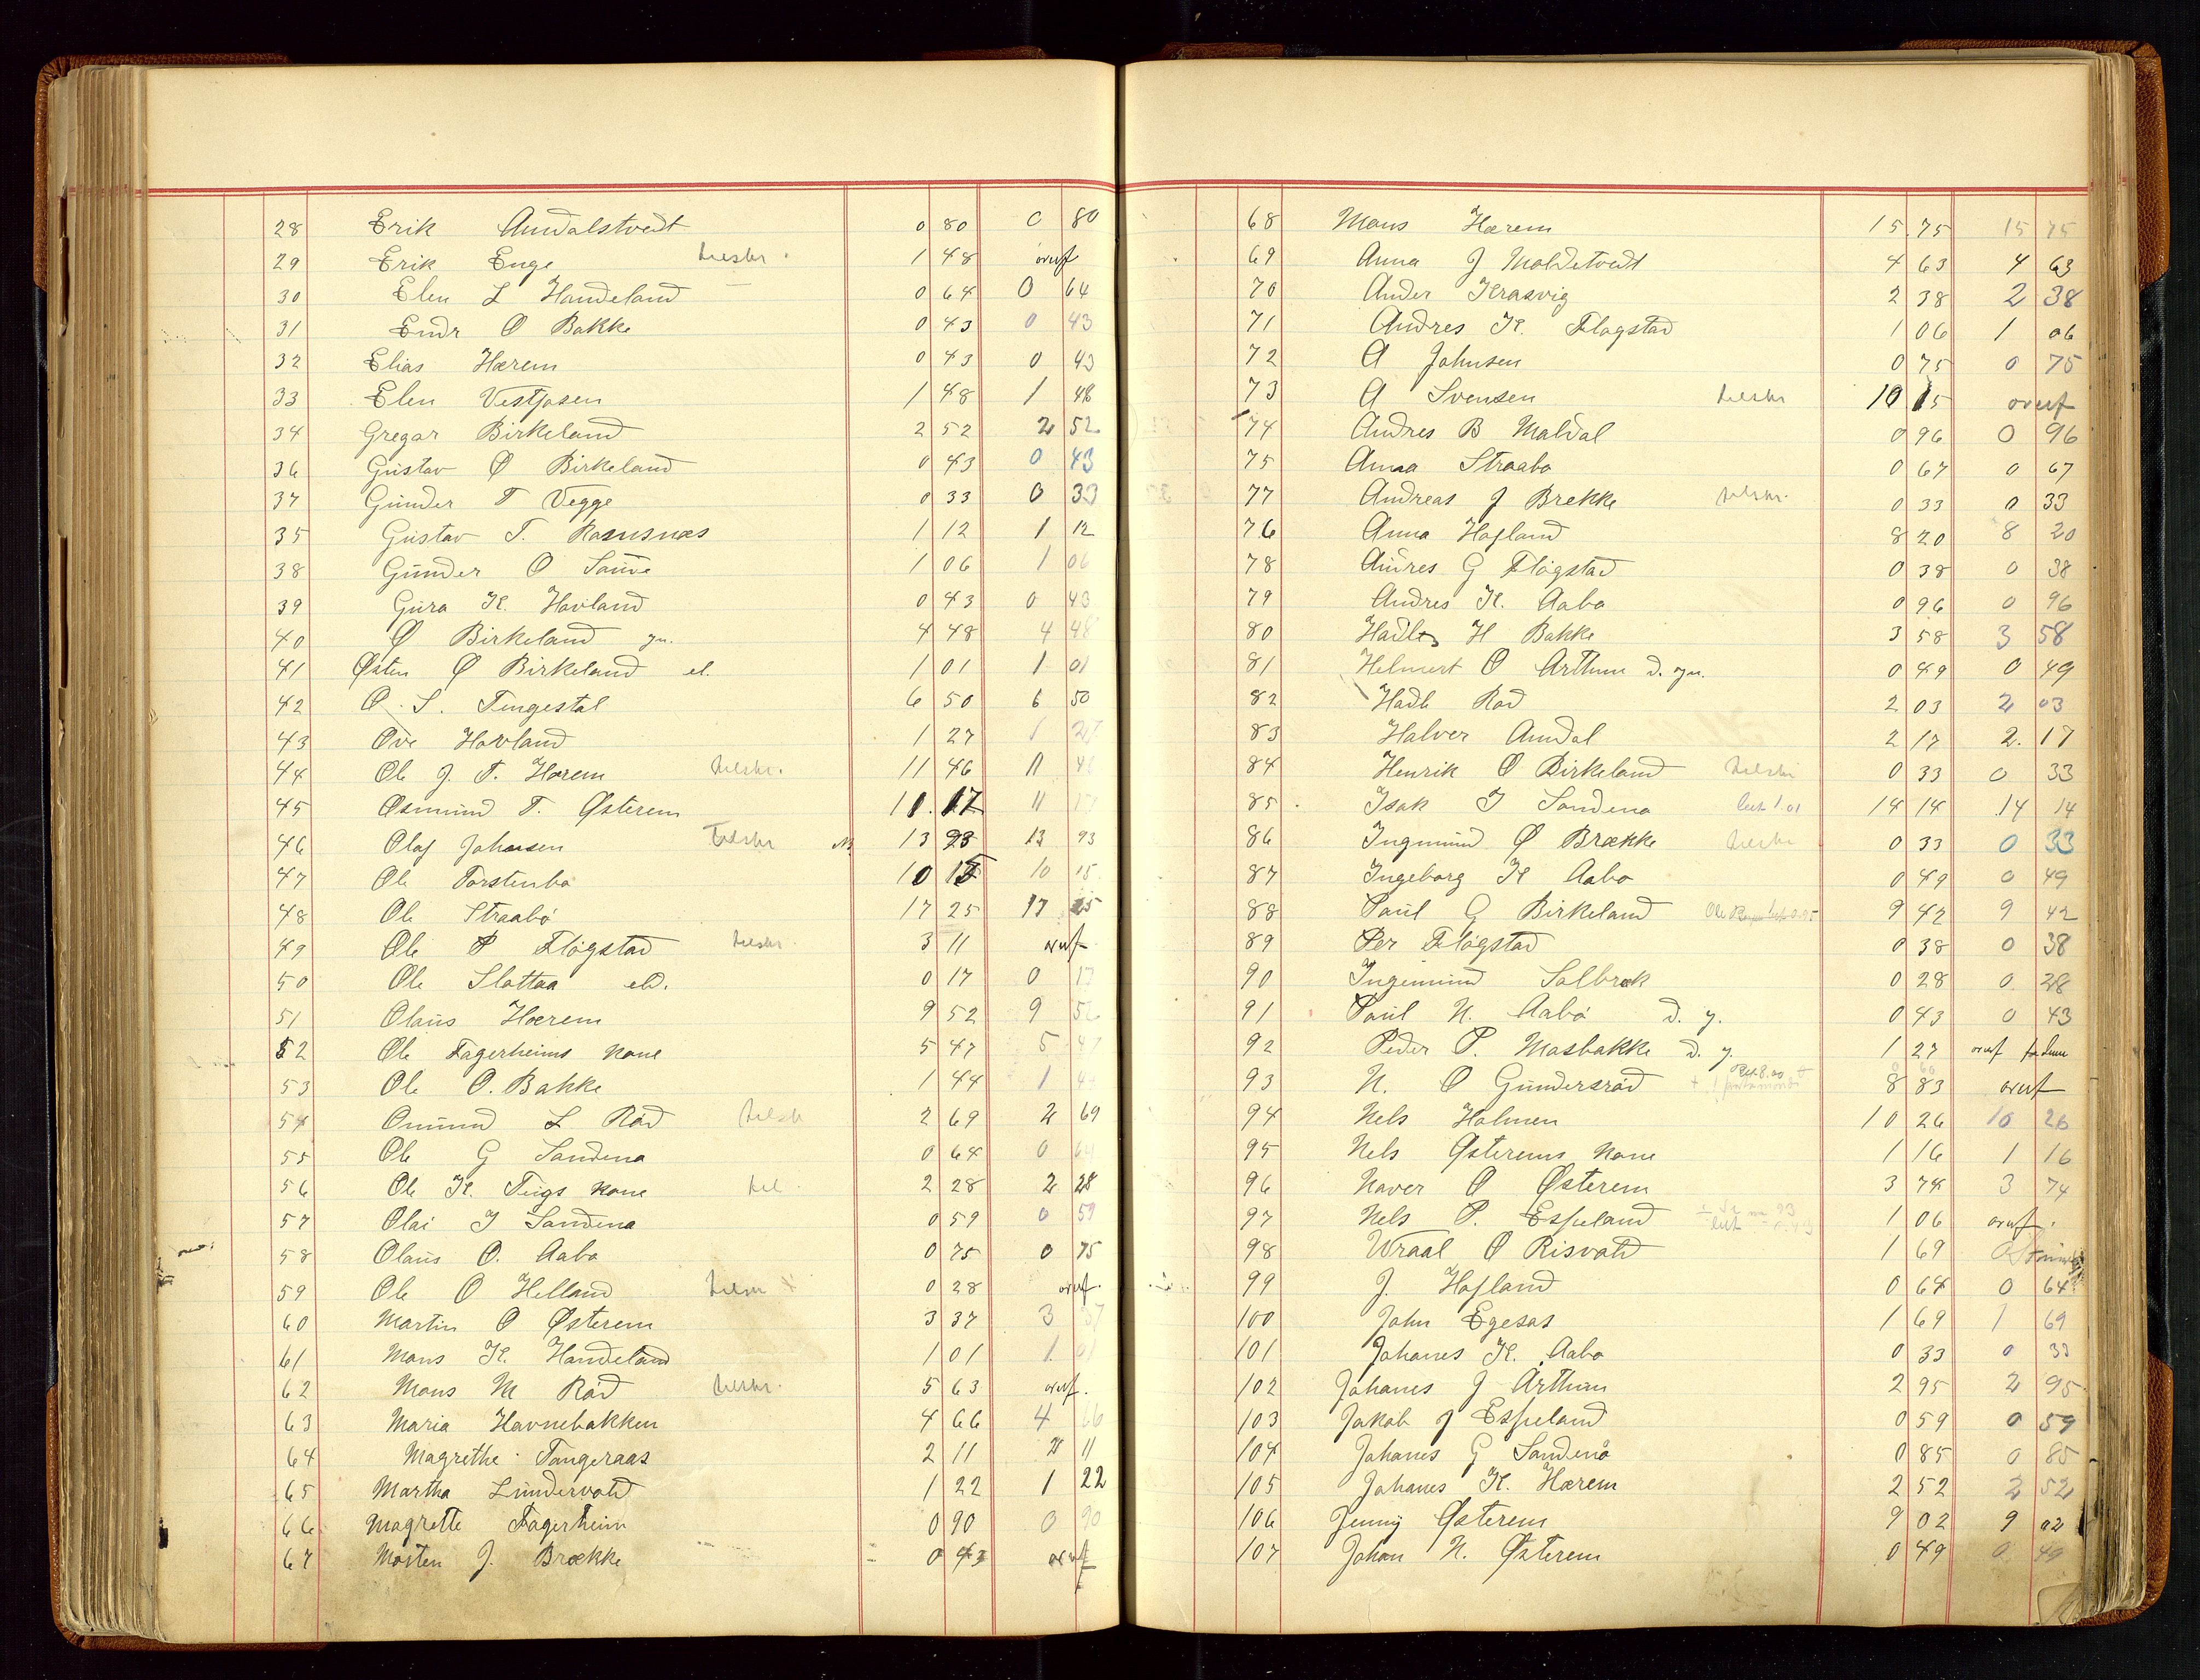 28 Erik Amdalstvedt 0 80 0 80
29 Erik Enge tilskr. 1 48 overf
30 Elen L Handeland 0 64 0 64
31 Endr O Bakke 0 43 0 43
32 Elias Hærem 0 43 0 43
33 Elen Vestfosen 1 48 1 48
34 Gregar Birkeland 2 52 2 52
36 Gustav Ø Birkeland 0 43 0 43
37 Gunder T Vegge 0 33 0 33
35 Gustav T. 1 12 1 12
38 Gunder O Sauve 1 06 1 06
39 Gura K. Havland 0 43 0 43
40 Ø Birkeland yn. 4 48 4 48
41 Østen Ø Birkeland el. 1 01 1 01
42 O. S. Tengestal 6 50 6 50
43 Ove Havland 1 27 1 27
44 Ole J. T. Hærem tilskr. 11 46 11 46
45 Osmund T. Østerem 11 17 11 17
46 Olaf Johansen Tilskr 13 93 13 93
47 Ole Torstenbo 10 15 10 15
48 Ole Straabø 17 25 17 25
49 Ole P Fløgstad tilskr. 3 11 overf
50 Ole Slottaa eld. 0 17 0 17
51 Olaus Hærem 9 52 9 52
52 Ole Fagerheims kone 5 47 5 47
53 Ole O. Bakke 1 44 1 44
54 Omund L Rød tilskr 2 69 2 69
55 Ole G Sandena 0 64 0 64
56 Ole K. Tengs kone til. 2 28 2 28
57 Olai I Sandena 0 59 0 59
58 Olaus O. Aabø 0 75 0 75
59 Ole O Helland tilskr + 0 28 overf.
60 Martin O Østerem 3 37 3 37
61 Mons K. Handeland 1 01 1 01
62 Mons M Rød tilskr. 5 63 overf.
63 Maria Havnebakken 4 66 4 66
64 Magrethe Tangeraas 2 11 2 11
65 Martha Lundervold 1 22 1 22
66 Magrette Fagerheim 0 90 0 90
67 Mosten J. Brække 0 43 overf
68 Mons Hærem 15 75 15 75
69 Anna J Moldetvedt 4 63 4 63
70 Ander Krasvig 2 38 2 38
71 Andres K. Flagstad 1 06 1 06
72 A Johnsen 0 75 0 75
73 A Svensen tilskr 10 15 overf
74 Andres B Maldal 0 96 0 96
75 Anna Straabø 0 67 0 67
77 Andreas J Brekke tilskr. 0 33 0 33
76 Anna Hafland 8 20 8 20
78 Andres G Fløgstad 0 38 0 38
79 Andres K. Aabø 0 96 0 96
80 Hadle H Bakke 3 58 3 58
81 Helmert O Arthun d. yn. 0 49 0 49
82 Hadle Rød 2 03 2 03
83 Halver Amdal 2 17 2. 17
84 Henrik O Birkeland tilskr 0 33 0 33
85 Isak I Sandena bet 1.01 14 14 14 14
86 Ingmund Ø Brække tilskr 0 33 0 33
87 Ingeborg K Aabø 0 49 0 49
88 Paul G Birkeland 9 42 9 42
89 Per Fløgstad 0 38 0 38
90 Ingemund Solbræk 0 28 0 28
91 Paul N. Aabø d. y. 0 43 0 43
92 Peder P. Mosbakke d. y. 1 27 overf
93 N. O Gundersrød 8 83 overf
94 Nels Holmen 10 26 10 26
95 Nels Østerems kone 1 16 1 16
96 Naver O Østerem 3 74 3 74
97 Nels P. Espeland 1 06 overf.
98 Wraal O Risvold 1 69
99 J. Hafland 0 64 0 64
100 John Egesas 1 69 1 69
101 Johanes K. Aabø 0 33 0 33
102 Johanes J Arthun 2 95 2 95
103 Jakob J Espeland 0 59 0 59
104 Johanes G Sandenø 0 85 0 85
105 Johanes K. Hærem 2 52 2 52
106 Jenny Østerem 9 02 9 02
107 Johan N. Østerem 0 49 0 49